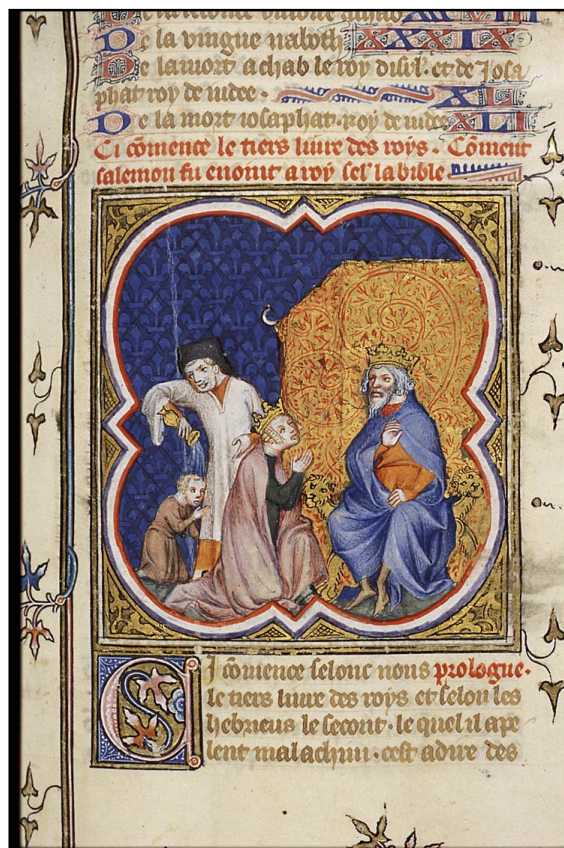 De la vingue naboth XXXIX
De la mort achab le roy disrl. et de Josa
phat roy de iudee. XL
De la mort iosaphat. roy de iudee XLI
Ci cōmence le tiers liure des roys. Cōment
salemon fu enoint a roy sel' la bible
CI cōmence selonc nous prologue.
le tiers liure des roys et selon les
hebrieus le secont. le quel il ape
lent malachim. cest adire des